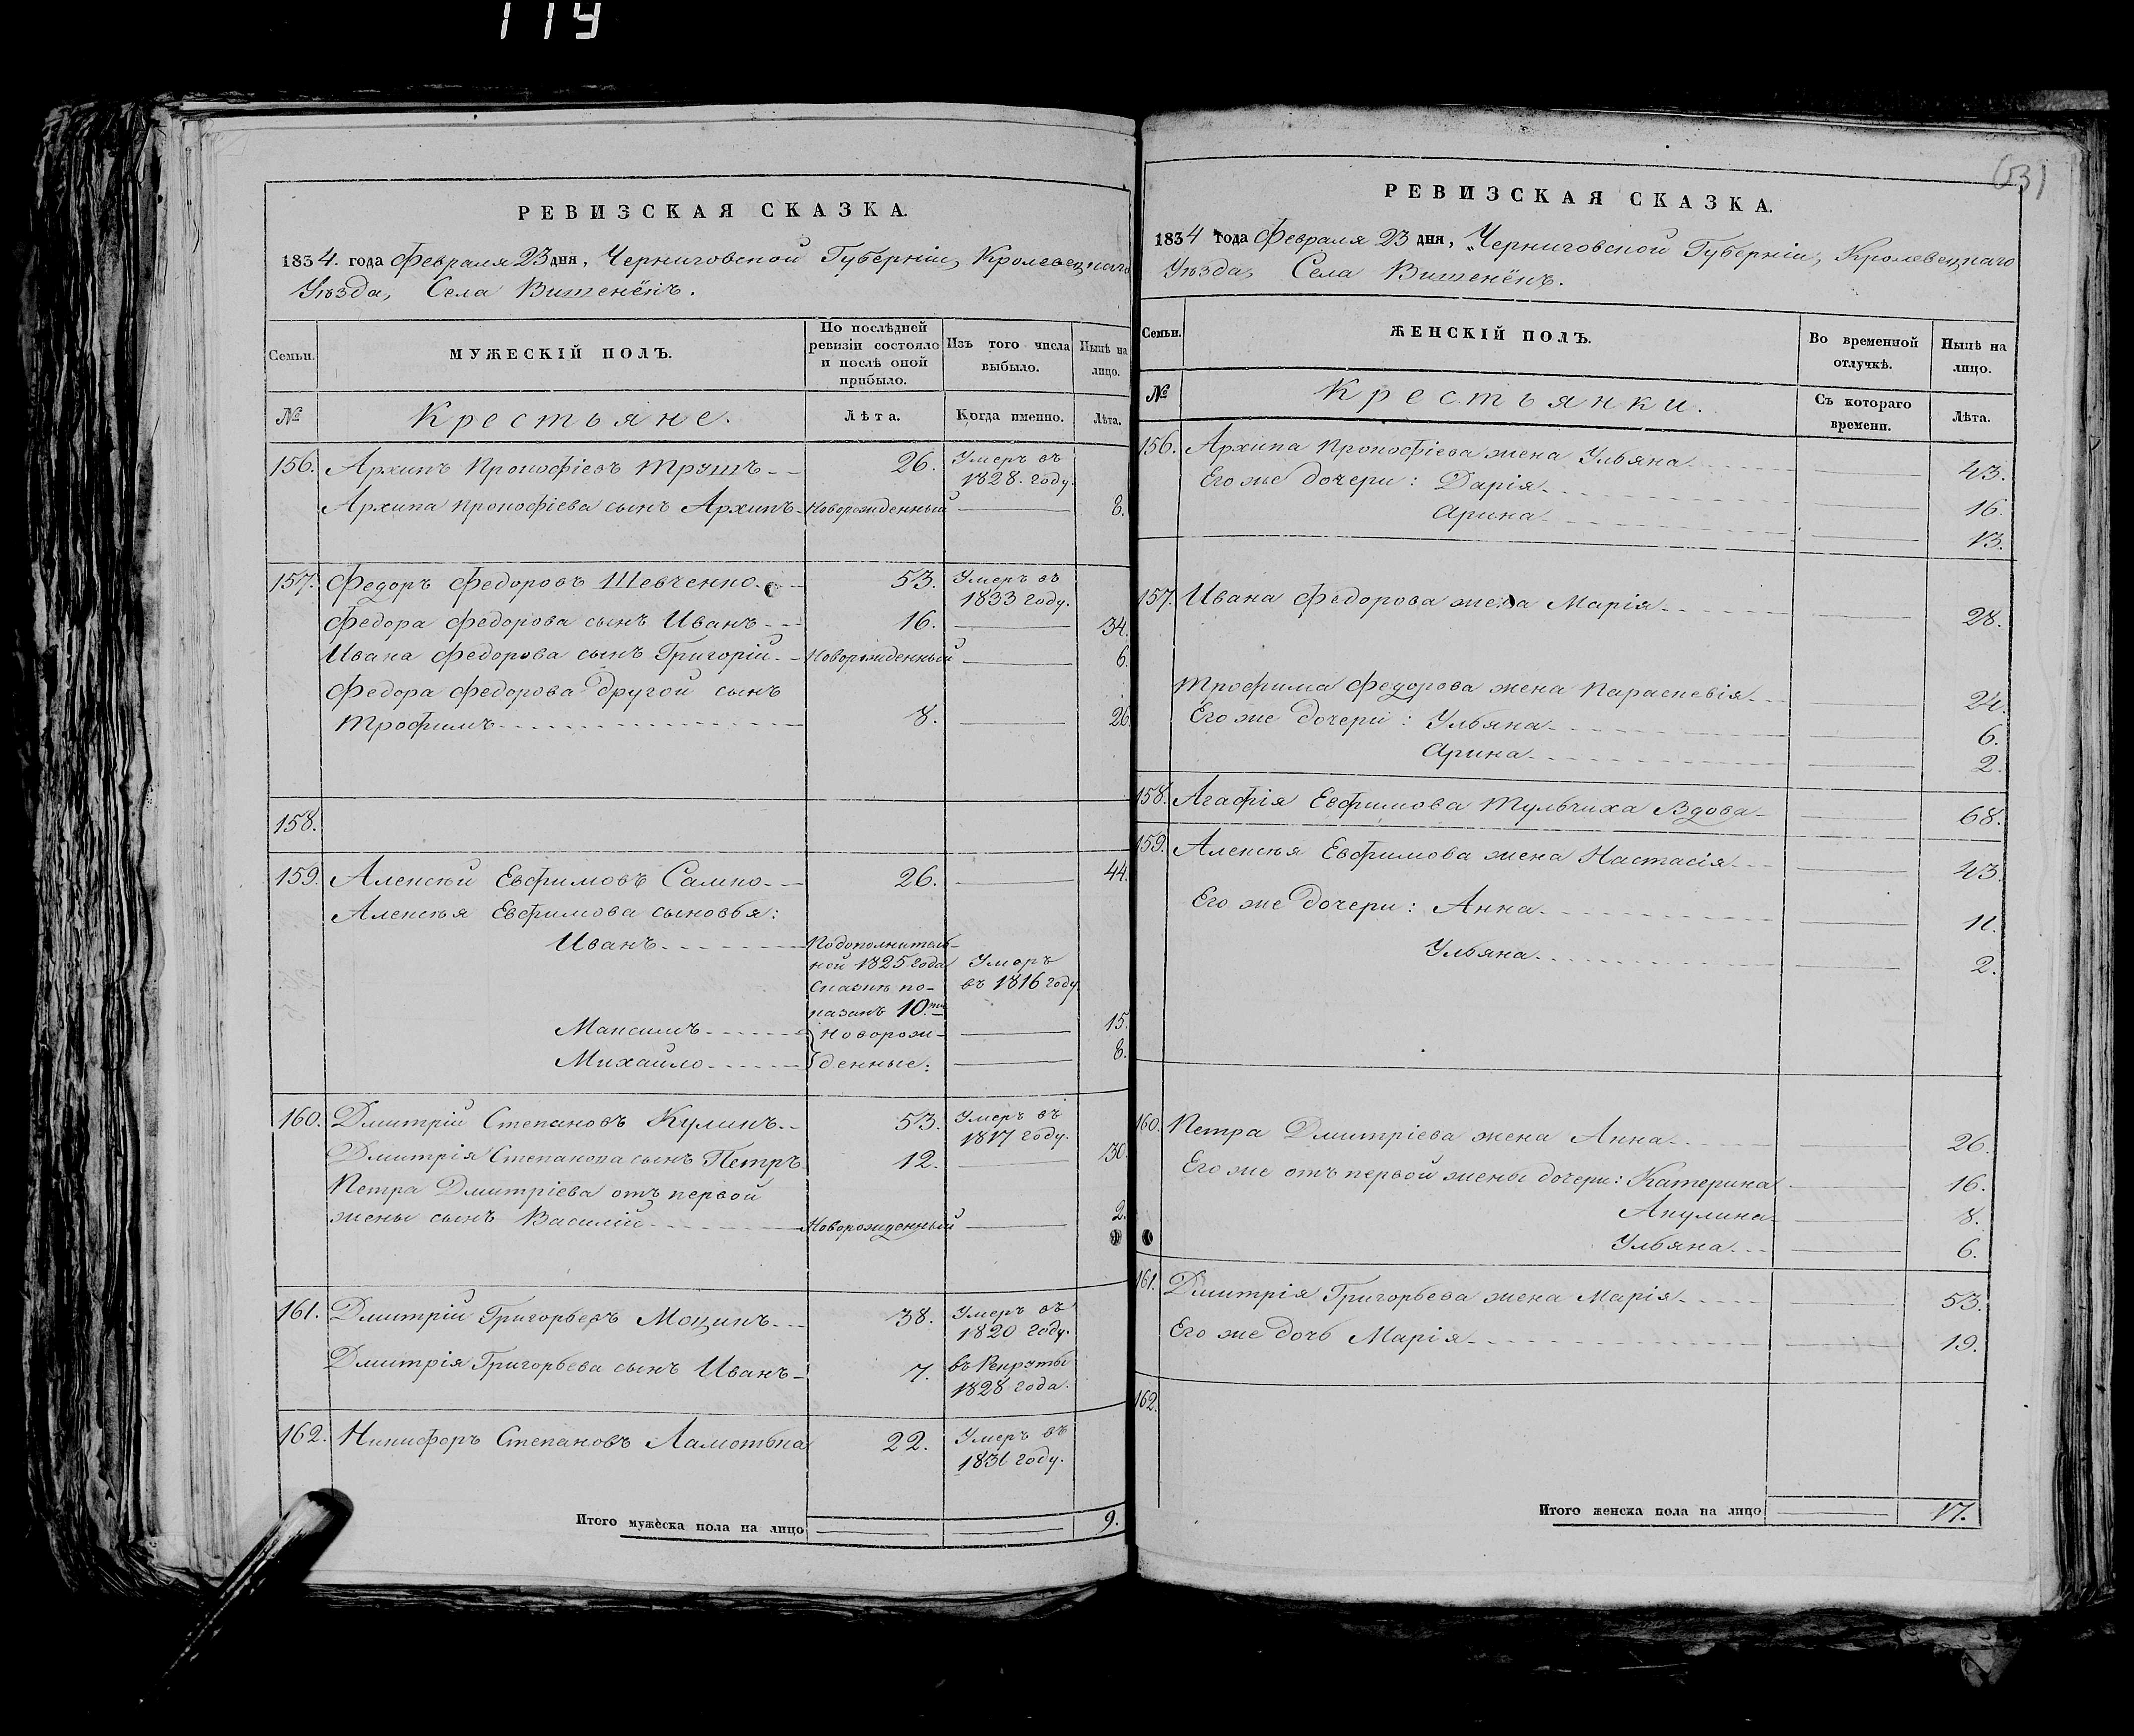 119
РЕВИЗСКАЯ СКАЗКА.
1834. года Февраля 23 дня, Черниговской Губерніи, Кролевецкаго
Уѣзда, Села Витенёкъ.
Семьи.
МУЖЕСКІЙ ПОЛЪ.
По послѣдней ревизіи состояло и послѣ оной прибыло.
Изъ того числа выбыло.
Нынѣ на лицо.
№
Крестьяне.
Лѣта.
Когда именно.
Лѣта.
156. Архипъ Прокофіевъ Трушъ 26. Умеръ въ 1828. году.
Архипа Прокофіева сынъ Архипъ Новорожденный 8.
157. Федоръ Федоровъ Шевченко. 53. Умеръ въ 1833 году.
Федора Федорова сынъ Иванъ 16. 34.
Ивана Федорова сынъ Григорій Новорожденный 6.
Федора Федорова другой сынъ
Трофимъ 8. 26
158.
159. Алексѣй Евфимовъ Самко 26. 44.
Алексѣя Евфимова сыновья:
Иванъ По дополнитель-
ной 1825 года Умеръ
сказкѣ по- въ 1816 году
казанъ 10.ти
Максимъ Новорож- 15.
Михайло денные: 8.
160. Дмитрій Степановъ Куликъ 53. Умеръ въ 1817 году.
Дмитрія Степанова сынъ Петръ 12. 30.
Петра Дмитріева отъ первой
жены сынъ Василій Новорожденный 2.
161. Дмитрій Григорьевъ Моцикъ 38. Умеръ въ 1820 году.
Дмитрія Григорьева сынъ Иванъ 7. въ Рекруты 1828 года.
162. Никифоръ Степановъ Ламотька 22. Умеръ въ 1831 году.
Итого мужеска пола на лицо 9.
РЕВИЗСКАЯ СКАЗКА.
1834 года Февраля 23 дня, Черниговской Губерніи, Кролевецкаго
Уѣзда, Села Витенёкъ.
Семьи.
ЖЕНСКІЙ ПОЛЪ.
Во временной отлучкѣ.
Нынѣ на лицо.
№
Крестьянки.
Съ котораго времени.
Лѣта.
156. Архипа Прокофіева жена Ульяна 43.
Его же дочери: Дарія 16.
Арина 13.
157. Ивана Федорова жена Марія 28.
Трофима Федорова жена Параскевія 24.
Его же дочери: Ульяна 6.
Арина 2.
158. Агафія Евфимова Тульчиха Вдова 68.
159. Алексѣя Евфимова жена Настасія 43.
Его же дочери: Анна 11.
Ульяна 2.
160. Петра Дмитріева жена Анна 26.
Его же отъ первой жены дочери: Катерина 16.
Акулина 8.
Ульяна 6.
161. Дмитрія Григорьева жена Марія 53.
Его же дочь Марія 19.
162.
Итого женска пола на лицо 17.